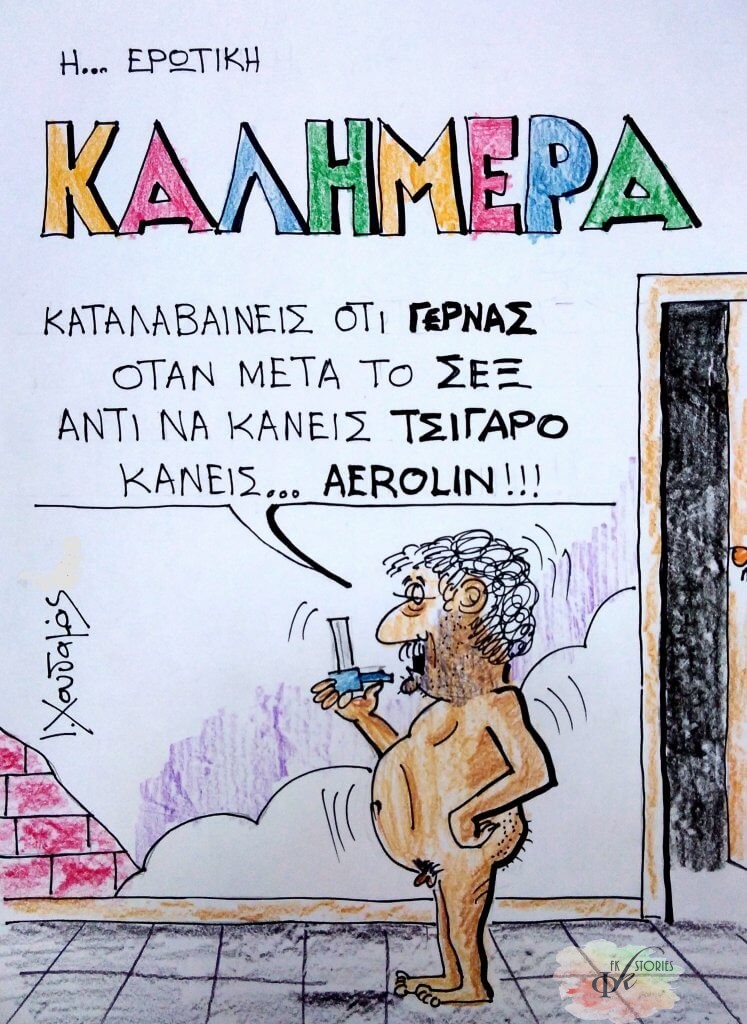 Η... ΕΡΩΤΙΚΗ
ΚΑΛΗΜΕΡΑ
ΚΑΤΑΛΑΒΑΙΝΕΙΣ ΟΤΙ ΓΕΡΝΑΣ
ΟΤΑΝ ΜΕΤΑ ΤΟ ΣΕΞ
ΑΝΤΙ ΝΑ ΚΑΝΕΙΣ ΤΣΙΓΑΡΟ
ΚΑΝΕΙΣ... AEROLIN!!!
FK STORIES